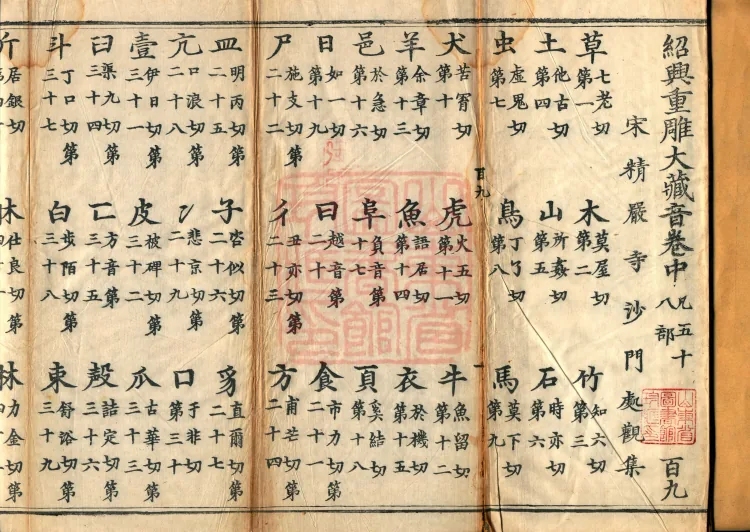 紹興重雕大藏音卷中 凡五十八部 百九
宋精嚴寺沙門處觀集
草七老切第一 木莫屋切第二 竹知六切第三
土他古切第四 山所姦切第五 石時亦切第六
虫虛鬼切第七 鳥丁了切第八 馬莫下切第九
百九
犬苦切第十 虎火五切第十一 牛魚留切第十二
羊余章切第十三 魚語居切第十四 衣於機切第十五
邑於急切第十六 阜負音第十七 頁奚結切第十八
日如一切第十九 曰越音第二十 食市力切第二十一
尸施支切第二十二 彳丑亦切第二十三 方甫芒切第二十四
皿明丙切第二十五 子呰似切第二十六 豸直爾切第二十七
亢口浪切第二十八 冫悲京切第二十九 口于非切第三十
壹伊日切第三十一 皮被碑切第三十二 爪古華切第三十三
臼渠九切第三十四 匚方音第三十五 殸詰定切第三十六
斗丁口切第三十七 白步陌切第三十八 束舒浴切第三十九
斤居銀切第 仕良切第 林力金切第